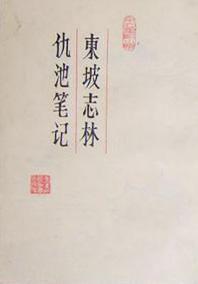 東坡志林
仇池笔记